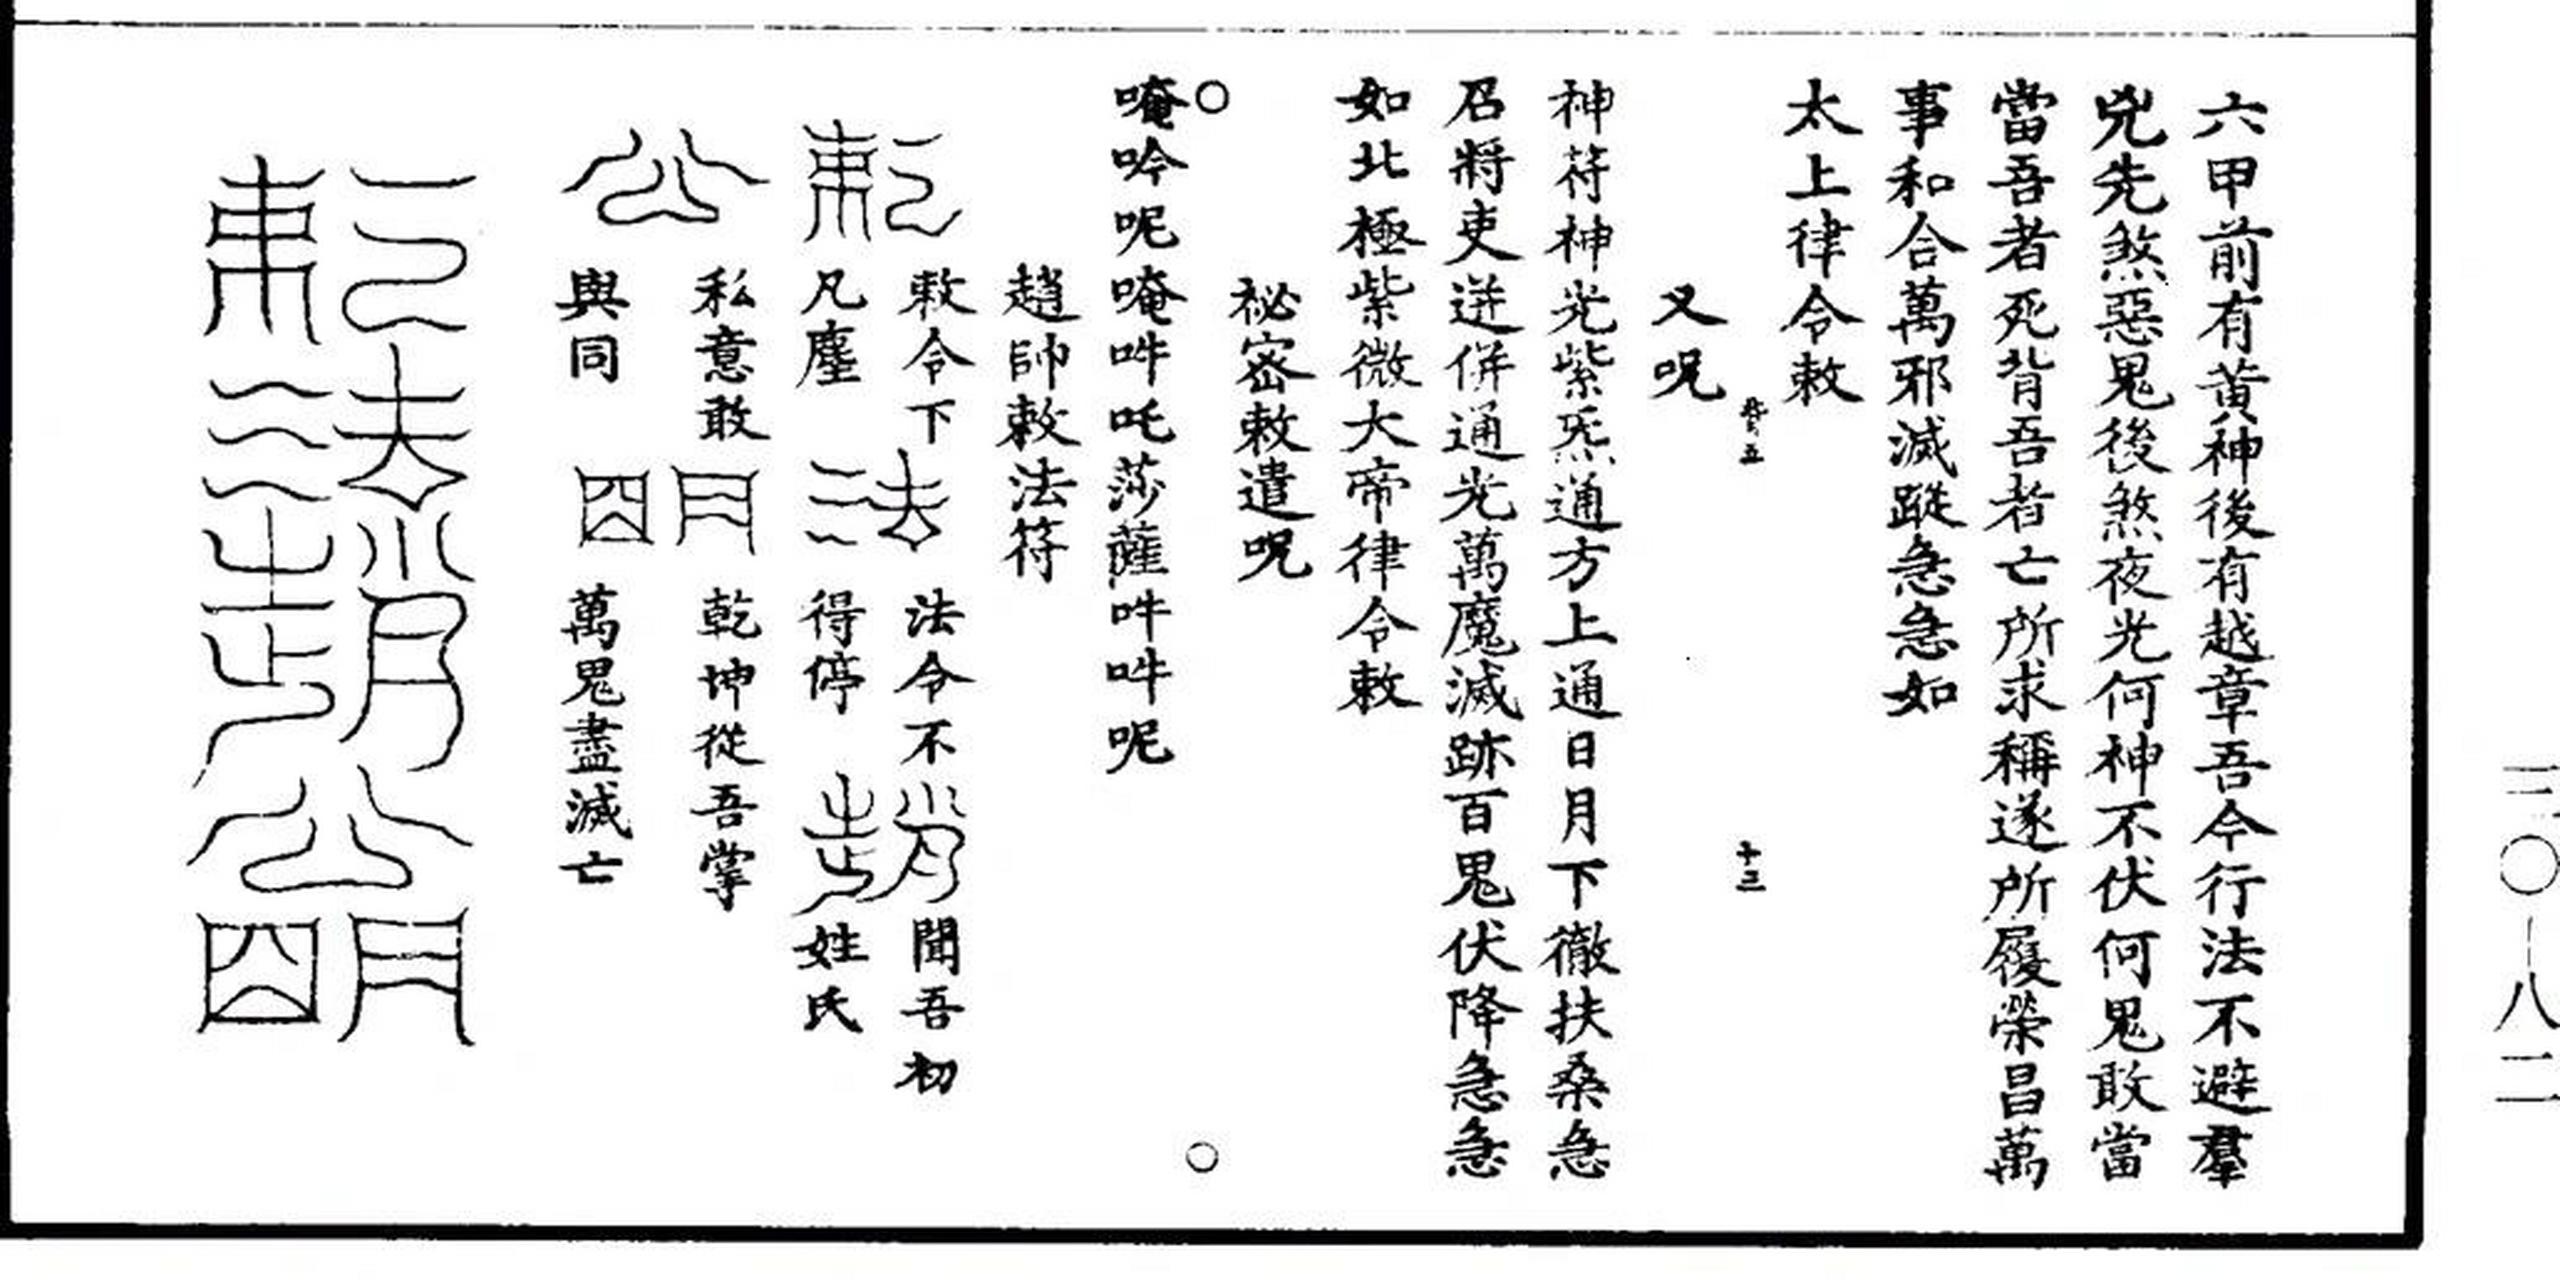 六甲前有黃神後有越章吾今行法不避羣
兇先煞惡鬼後煞夜光何神不伏何鬼敢當
當吾者死背吾者亡所求稱遂所履榮昌萬
事和合萬邪滅蹤急急如
太上律令敕
十三
又呪
神符神光紫炁通方上通日月下徹扶桑急
召將吏迸併通光萬魔滅跡百鬼伏降急急
如北極紫微大帝律令敕
祕密敕遣呪
唵吟呢唵吽吒莎薩吽吽呢
趙帥敕法符
敕令下
法令不
聞吾初
凡塵
得停
姓氏
私意敢
乾坤從吾掌
與同
萬鬼盡滅亡
三〇—八二